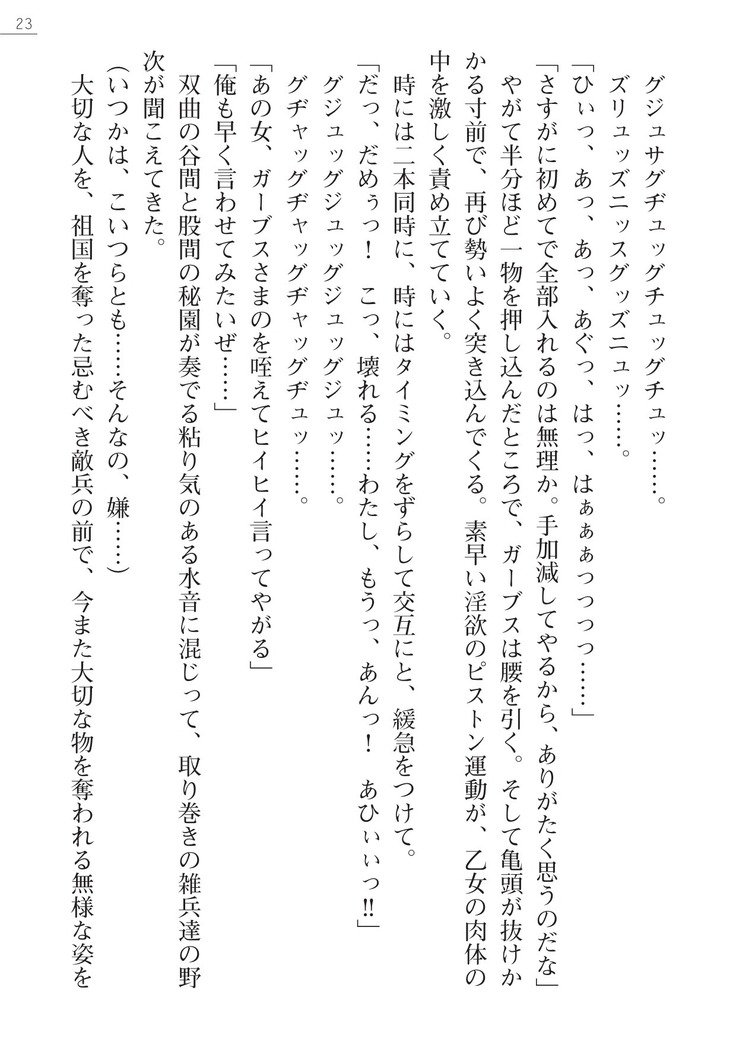 23
グジュサグヂュッグチュッグチュッ……。
ズリュッズニッスグッズニュッ……。
「ひぃっ、あっ、あっ、あぐっ、はっ、はぁぁぁっつっつっ……」
「さすがに初めてで全部入れるのは無理か。手加減してやるから、ありがたく思うのだな」
やがて半分ほど一物を押し込んだところで、ガーブスは腰を引く。そして亀頭が抜けか
かる寸前で、再び勢いよく突き込んでくる。素早い淫欲のピストン運動が、乙女の肉体の
中を激しく責め立てていく。
時には二本同時に、時にはタイミングをずらして交互にと、緩急をつけて。
「だっ、だめぅっ！　こっ、壊れる……わたし、もうっ、あんっ！　あひぃぃっ!!」
グジュッグジュッグジュッグジュッ……。
グヂャッグヂャッグヂャッグヂュッ……。
「あの女、ガーブスさまのを咥えてヒイヒイ言ってやがる」
「俺も早く言わせてみたいぜ……」
双曲の谷間と股間の秘園が奏でる粘り気のある水音に混じって、取り巻きの雑兵達の野
次が聞こえてきた。
（いつかは、こいつらとも……そんなの、嫌……）
大切な人を、祖国を奪った忌むべき敵兵の前で、今また大切な物を奪われる無様な姿を